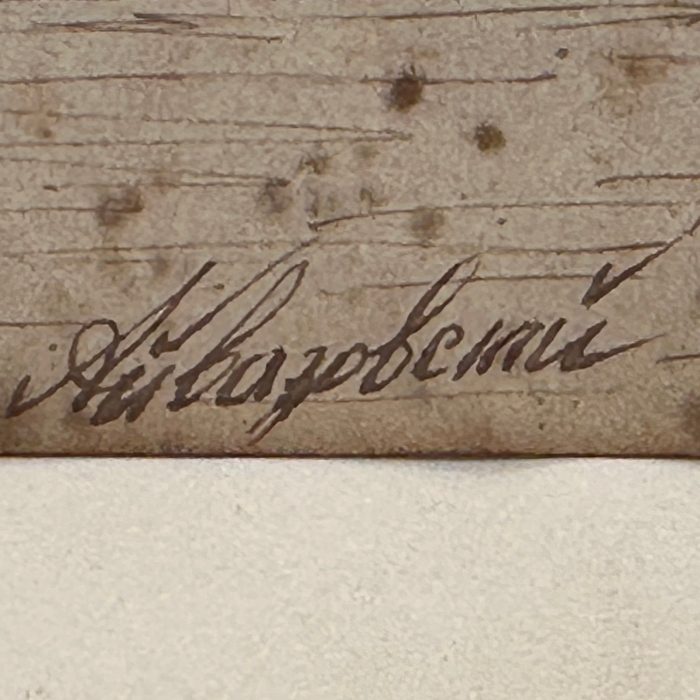 Айвазовскій